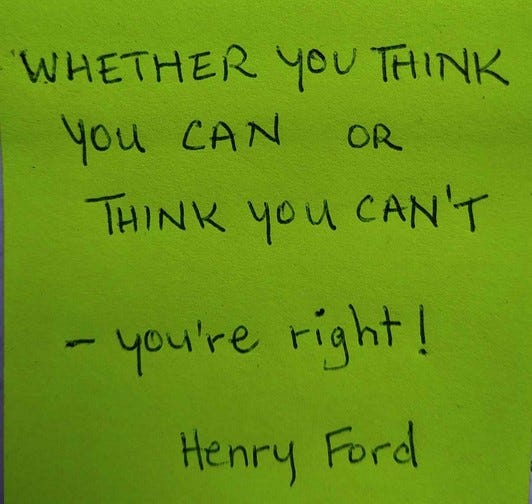 WHETHER YOU THINK
YOU CAN OR
THINK YOU CAN'T
- you're right!
Henry Ford